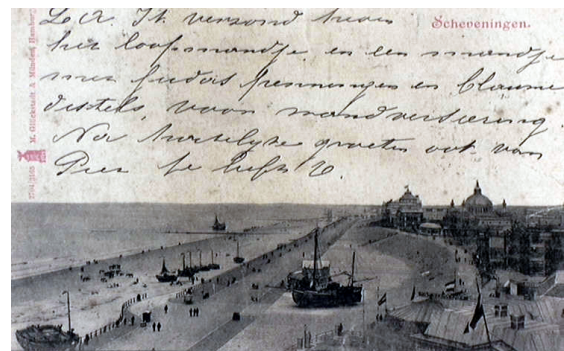 Scheveningen.
L A Ik verzond heden
het loofmandje en een mandje
met judas penningen en blauwe
distels, voor wandversiering.
Na hartelyke groeten ook van
Piet te liefh
M. Glückstadt & Münden, Hamburg